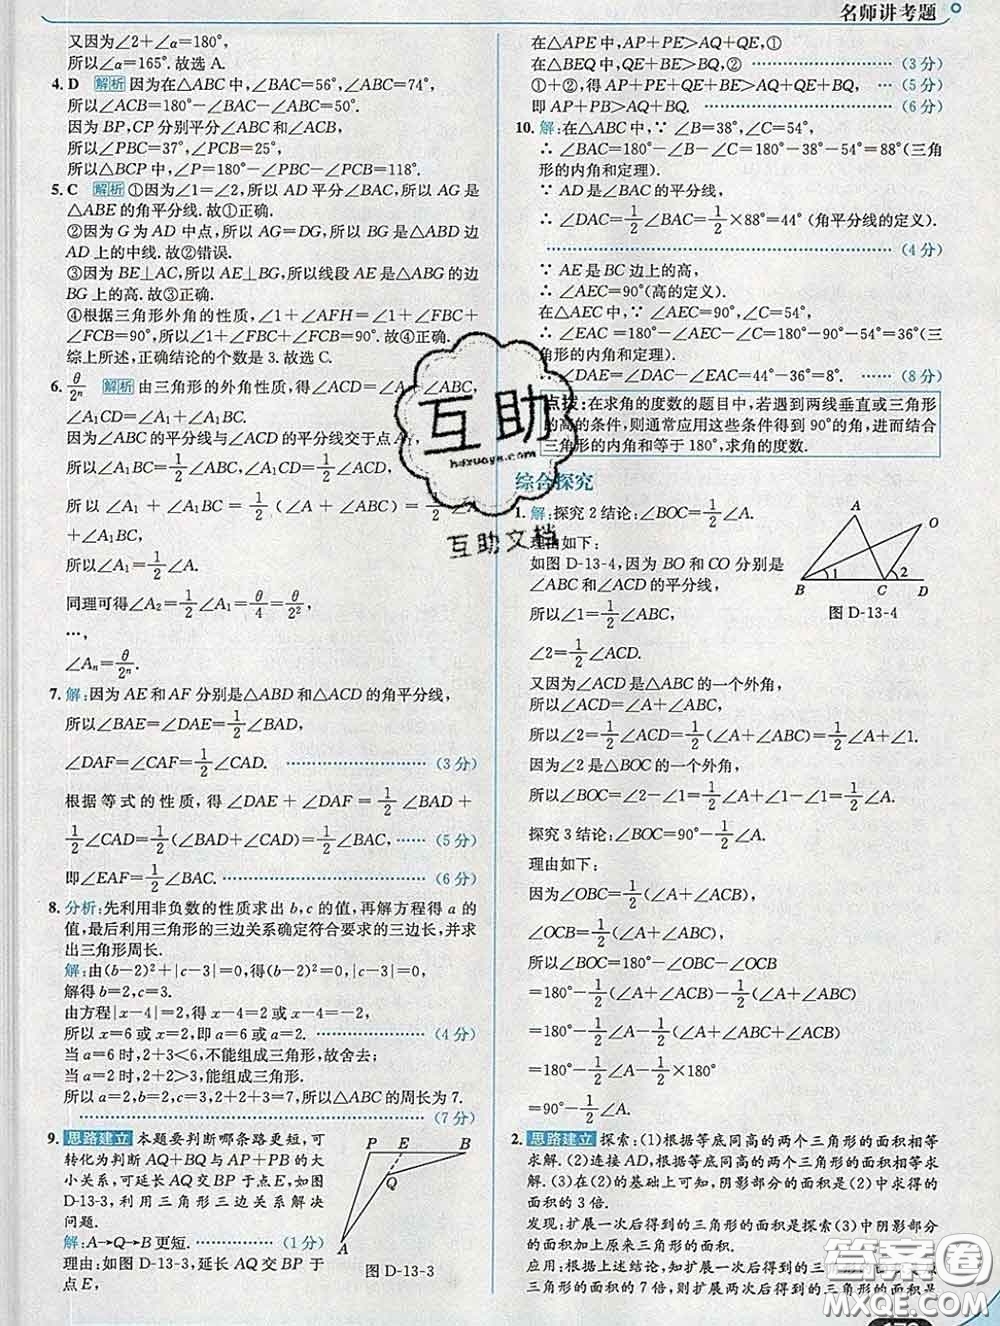 名师讲考题
又因为∠2+∠α=180°,
所以∠α=165°.故选 A.
4. D 解析 因为在△ABC 中,∠BAC=56°,∠ABC=74°,
所以∠ACB=180°-∠BAC-∠ABC=50°.
因为 BP,CP 分别平分∠ABC 和∠ACB,
所以∠PBC=37°,∠PCB=25°,
所以△BCP 中,∠P=180°-∠PBC-∠PCB=118°.
5. C 解析 ①因为∠1=∠2,所以 AD 平分∠BAC,所以 AG 是
△ABE 的角平分线.故①正确.
②因为 G 为 AD 中点,所以 AG=DG,所以 BG 是△ABD 边
AD 上的中线.故②错误.
③因为 BE⊥AC,所以 AE⊥BG,所以线段 AE 是△ABG 的边
BG 上的高.故③正确.
④根据三角形外角的性质,∠1+∠AFH=∠FBC+
∠FCB=90°,所以∠1+∠FBC+∠FCB=90°.故④正确.
综上所述,正确结论的个数是 3.故选 C.
6. θ/2ⁿ 解析 由三角形的外角性质,得∠ACD=∠A+∠ABC,
∠A₁CD=∠A₁+∠A₁BC.
因为∠ABC的平分线与∠ACD的平分线交于点A₁,
所以∠A₁BC=1/2∠ABC,∠A₁CD=1/2∠ACD,
所以∠A₁+∠A₁BC=1/2(∠A+∠ABC)=1/2∠A
+∠A₁BC,
所以∠A₁=1/2∠A.
同理可得∠A₂=1/2∠A₁=θ/4=θ/2²,
…,
∠Aₙ=θ/2ⁿ.
7. 解:因为 AE 和 AF 分别是∠ABD 和∠ACD 的角平分线,
所以∠BAE=∠DAE=1/2∠BAD,
∠DAF=∠CAF=1/2∠CAD. (3 分)
根据等式的性质,得∠DAE+∠DAF=1/2∠BAD+
1/2∠CAD=1/2(∠BAD+∠CAD)=1/2∠BAC, (5 分)
即∠EAF=1/2∠BAC. (6 分)
8. 分析:先利用非负数的性质求出 b,c 的值,再解方程得 a 的
值,最后利用三角形的三边关系确定符合要求的三边长,并求
出三角形周长.
解:由(b-2)²+|c-3|=0,得(b-2)²=0,|c-3|=0,
解得 b=2,c=3.
由方程|x-4|=2,得 x-4=2 或 x-4=-2,
所以 x=6 或 x=2,即 a=6 或 a=2. (4 分)
当 a=6 时,2+3<6,不能组成三角形,故舍去;
当 a=2 时,2+2>3,能组成三角形.
所以 a=2,b=2,c=3,2+2+3=7,所以△ABC 的周长为 7.
(7 分)
9. 思路建立 本题要判断哪条路更短,可
转化为判断 AQ+BQ 与 AP+PB 的
大小关系,可延长 AQ 交 BP 于点 E,如图
D-13-3,利用三角形三边关系解决
问题.
解:A→Q→B 更短. (1 分)
理由:如图 D-13-3,延长 AQ 交 BP 于
点 E,
P E B
Q
A
图 D-13-3
在△APE 中,AP+PE>AQ+QE,①
在△BEQ 中,QE+BE>BQ,② (3 分)
①+②,得 AP+PE+QE+BE>AQ+QE+BQ, (5 分)
即 AP+PB>AQ+BQ. (6 分)
10. 解:在△ABC 中,∵ ∠B=38°,∠C=54°,
∴ ∠BAC=180°-∠B-∠C=180°-38°-54°=88°(三角
形的内角和定理).
∵ AD 是∠BAC 的平分线,
∴ ∠DAC=1/2∠BAC=1/2×88°=44° (角平分线的定义).
(4 分)
∵ AE 是 BC 边上的高,
∴ ∠AEC=90°(高的定义).
在△AEC 中,
∴ ∠EAC =180°-∠AEC-∠C=180°-90°-54°=36°(三
角形的内角和定理).
∴ ∠DAE=∠DAC-∠EAC=44°-36°=8°. (8 分)
点拨:在求角的度数的题目中,若遇到两线垂直或三角形
的高的条件,则通常应用这些条件得到 90°的角,进而结合
三角形的内角和等于 180°,求角的度数.
综合探究
1. 解:探究 2 结论:∠BOC=1/2∠A.
理由如下:
如图 D-13-4,因为 BO 和 CO 分别是
∠ABC 和∠ACD 的平分线,
所以∠1=1/2∠ABC,
∠2=1/2∠ACD.
A
O
1 2
B C D
图 D-13-4
又因为∠ACD 是△ABC 的一个外角,
所以∠ACD=∠A+∠ABC,
所以∠2=1/2∠ACD=1/2(∠A+∠ABC)=1/2∠A+∠1.
因为∠2 是△BOC 的一个外角,
所以∠BOC=∠2-∠1=1/2∠A+∠1-∠1=1/2∠A.
探究 3 结论:∠BOC=90°-1/2∠A.
理由如下:
因为∠OBC=1/2(∠A+∠ACB),
∠OCB=1/2(∠A+∠ABC),
所以∠BOC=180°-∠OBC-∠OCB
=180°-1/2(∠A+∠ACB)-1/2(∠A+∠ABC)
=180°-1/2∠A-1/2(∠A+∠ABC+∠ACB)
=180°-1/2∠A-1/2×180°
=90°-1/2∠A.
2. 思路建立 探索:(1)根据等底同高的两个三角形的面积相等
求解.(2)连接 AD,根据等底同高的两个三角形的面积相等
求解.(3)在(2)的基础上可知,阴影部分的面积是(2)中求得
的面积的 3 倍.
发现:扩展一次后得到的三角形的面积是探索(3)中阴影部分
的面积加上原来三角形的面积.
应用:根据上述结论,知扩展一次后得到的三角形的面积是原
三角形的面积的 7 倍,则扩展两次后得到的三角形的面积是
互助
hezuoya.com
互助文档
答案圈
MXQE.COM